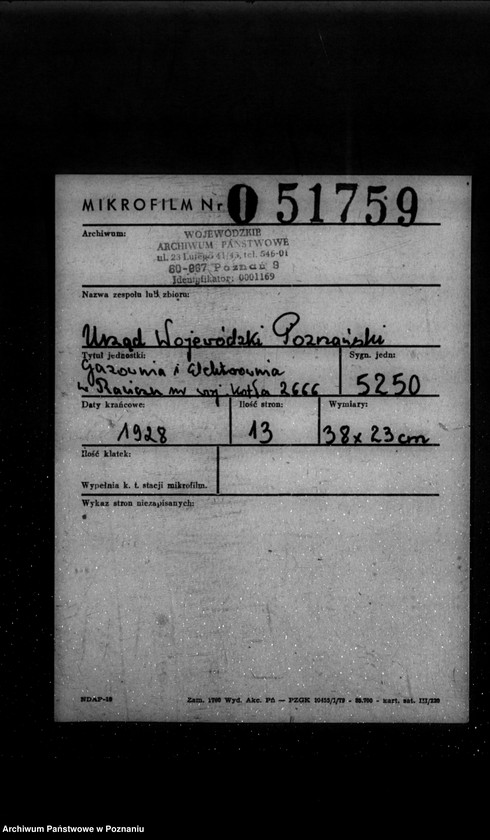 MIKROFILM Nr 0 51759
Archiwum:
WOJEWÓDZKIE
ARCHIWUM PAŃSTWOWE
ul. 23 Lutego 41/43, tel. 546-01
60-967 Poznań 9
Identyfikator: 0001169
Nazwa zespołu lub zbioru:
Urząd Wojewódzki Poznański
Tytuł jednostki:
Gazownia i Elektrownia
w nr kotła 2666
Sygn. jedn:
5250
Daty krańcowe:
1928
Ilość stron:
13
Wymiary:
38 x 23 cm
Ilość klatek:
Wypełnia k. t. stacji mikrofilm.
Wykaz stron niezapisanych:
NDAP-18
Zam. Wyd. Akc. Pń — PZGK kart. sat. III/230
Archiwum Państwowe w Poznaniu